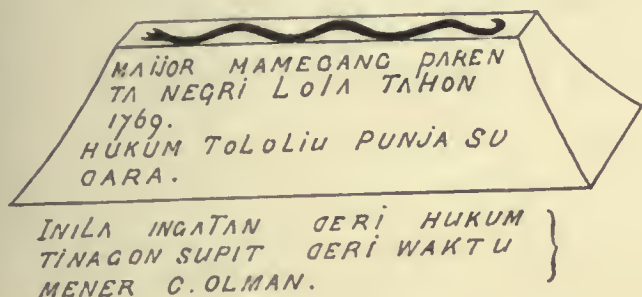 MAIJOR MAMEGANG PAREN
TA NEGRI LOLA TAHON
1769.
HUKUM TOLOLIU PUNJA SU
DARA.
INILA INGATAN DERI HUKUM
TINAGON SUPIT DERI WAKTU
MENER C. OLMAN.